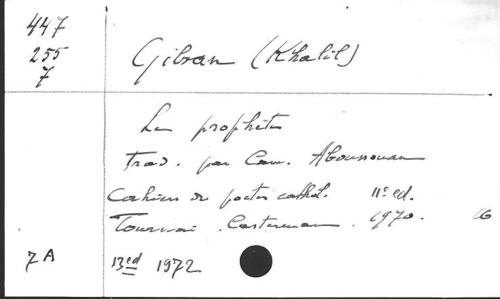 447
255
7
Gibran (Khalil)
Le prophète
trad. par Cam. Aboussouan
Cahiers de poètes cathol. 11e ed.
Tournai. Casterman. 1970.
7A
13ed 1972